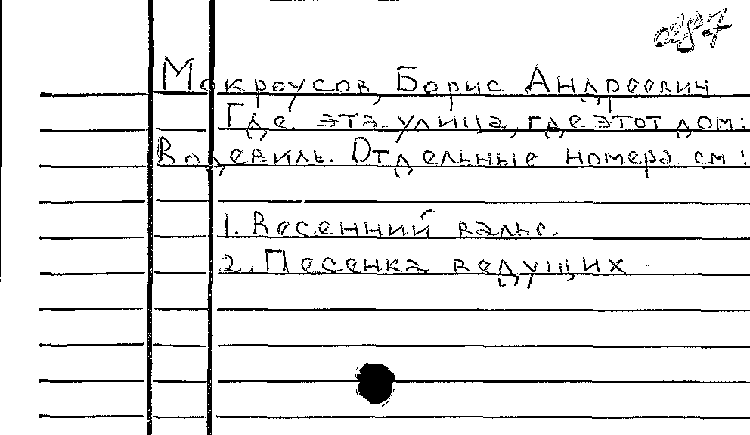 287
Мокроусов, Борис Андреевич
Где эта улица, где этот дом:
Водевиль. Отдельные номера см:
1. Весенний вальс.
2. Песенка ведущих